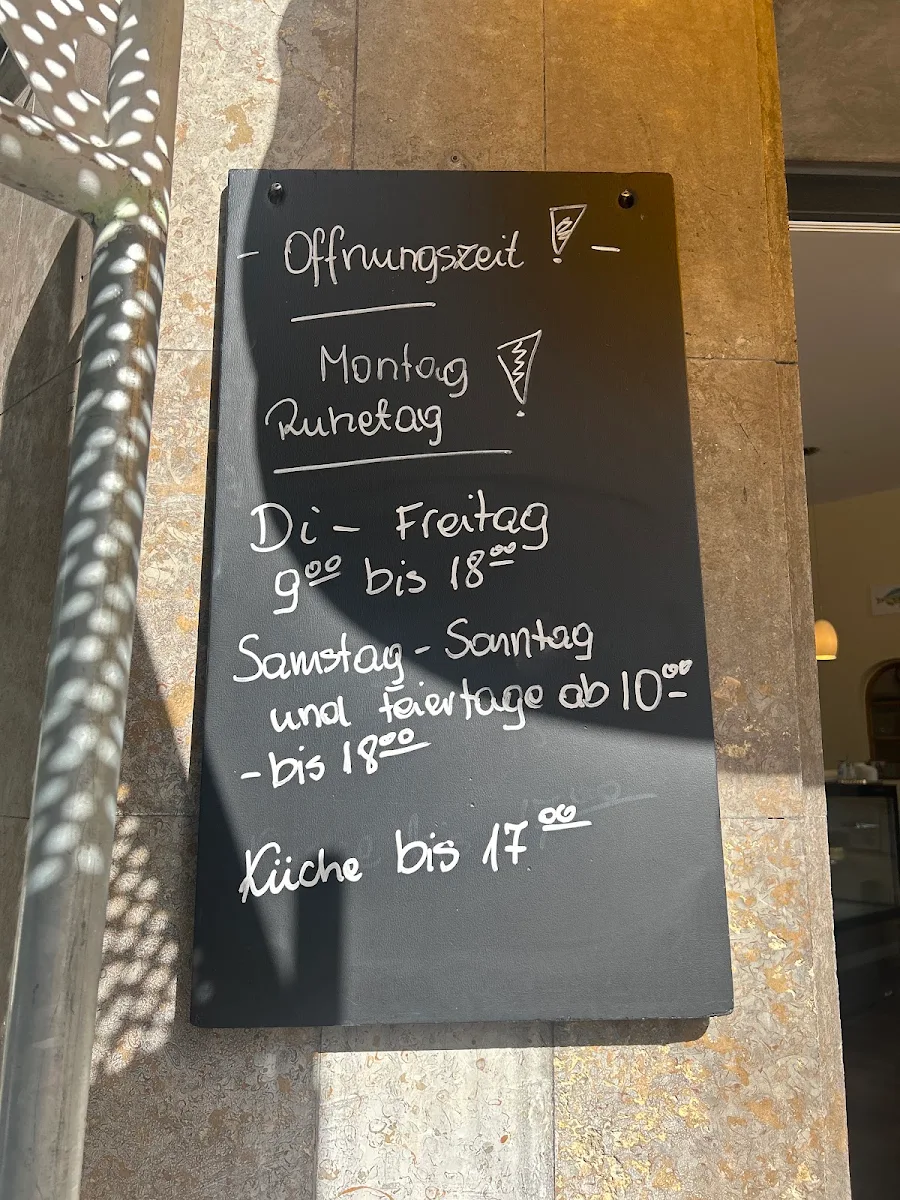 - Offnungszeit ! -
Montag !
Ruhetag
Di - Freitag
9⁰⁰ bis 18⁰⁰
Samstag - Sonntag
und Feiertage ab 10⁰⁰
- bis 18⁰⁰
Küche bis 17⁰⁰